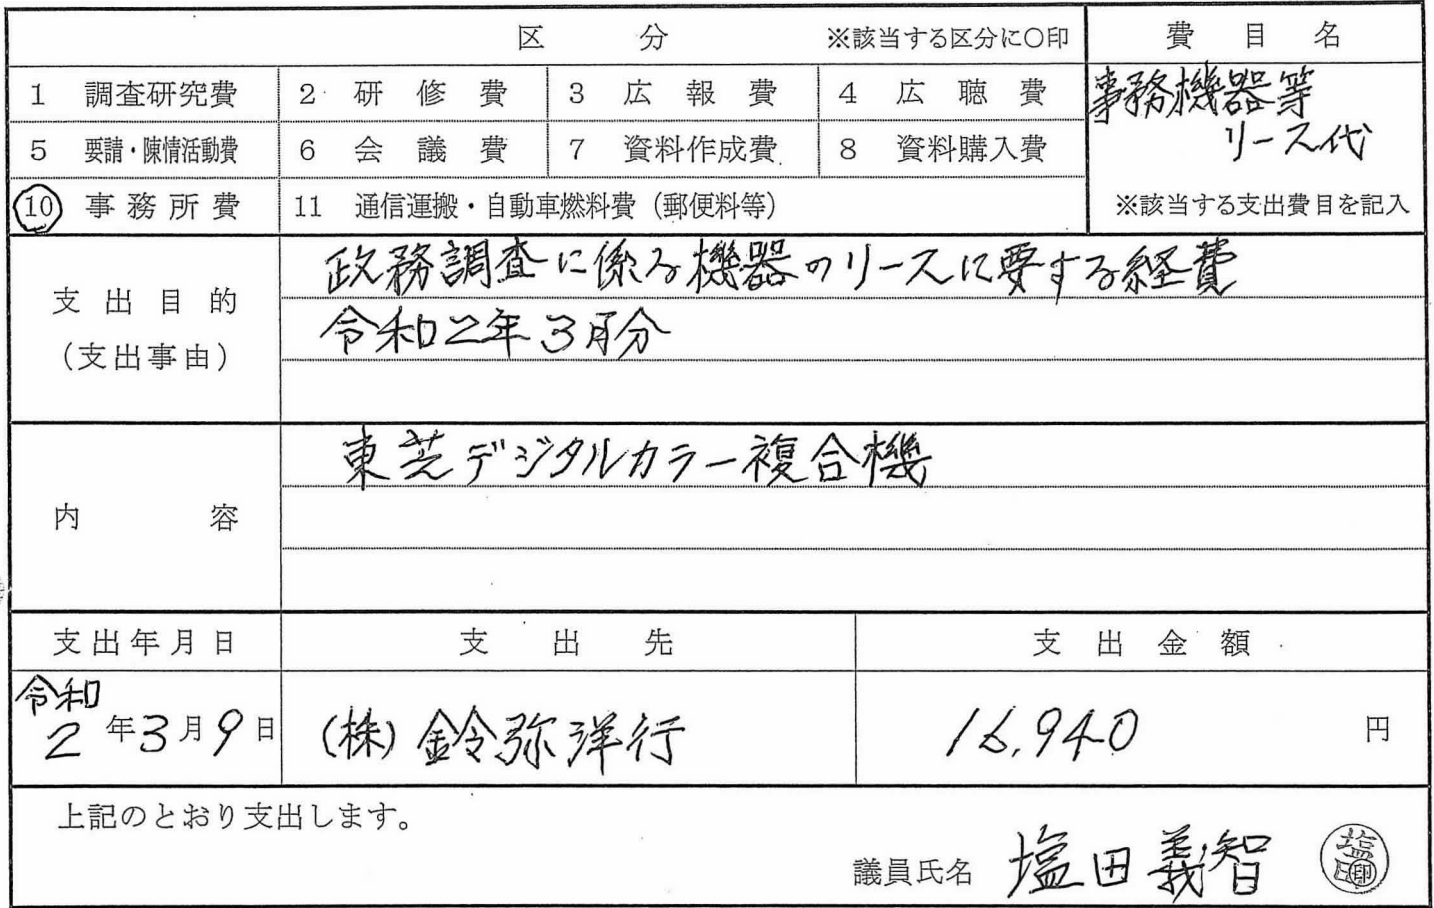 区分 ※該当する区分に○印 費目名
1 調査研究費 2 研修費 3 広報費 4 広聴費 事務機器等
リース代
5 要請・陳情活動費 6 会議費 7 資料作成費 8 資料購入費
10 事務所費 11 通信運搬・自動車燃料費（郵便料等） ※該当する支出費目を記入
支出目的
（支出事由）
政務調査に係る機器のリースに要する経費
令和2年3月分
内容
東芝デジタルカラー複合機
支出年月日 支出先 支出金額
令和
2年3月9日 (株)鈴弥洋行 16,940 円
上記のとおり支出します。
議員氏名 塩田義智 塩田 印